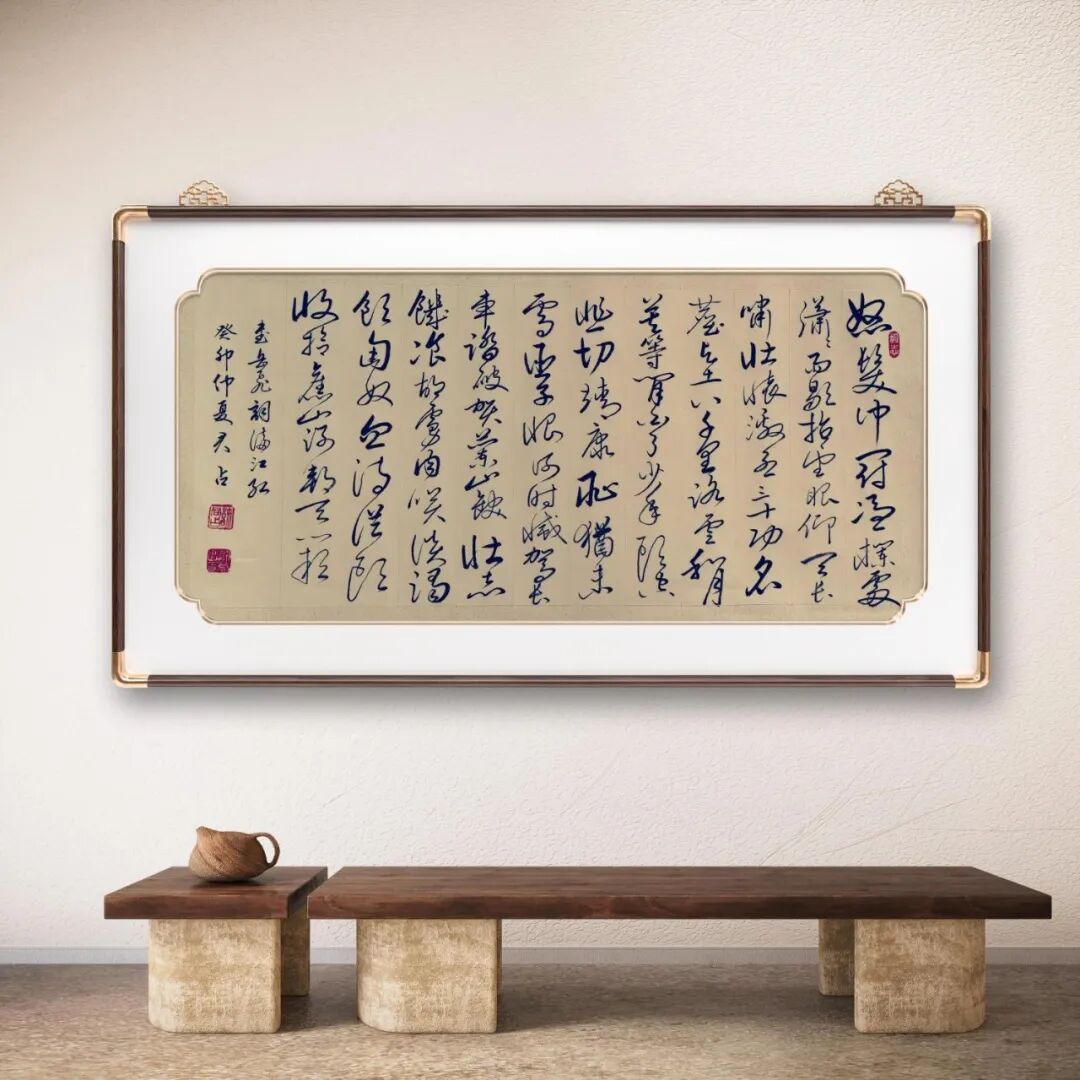 怒髮冲冠凭欄處
瀟瀟雨歇抬望眼仰天长
嘯壮懷激烈三十功名
塵与土八千里路雲和月
莫等闲白了少年頭空
悲切靖康耻猶未
雪臣子恨何时滅驾长
车踏破贺蘭山缺壮志
饑飡胡虜肉笑谈渴
飲匈奴血待從頭
收拾舊山河朝天闕
書岳飛詞满江红
癸卯仲夏君占